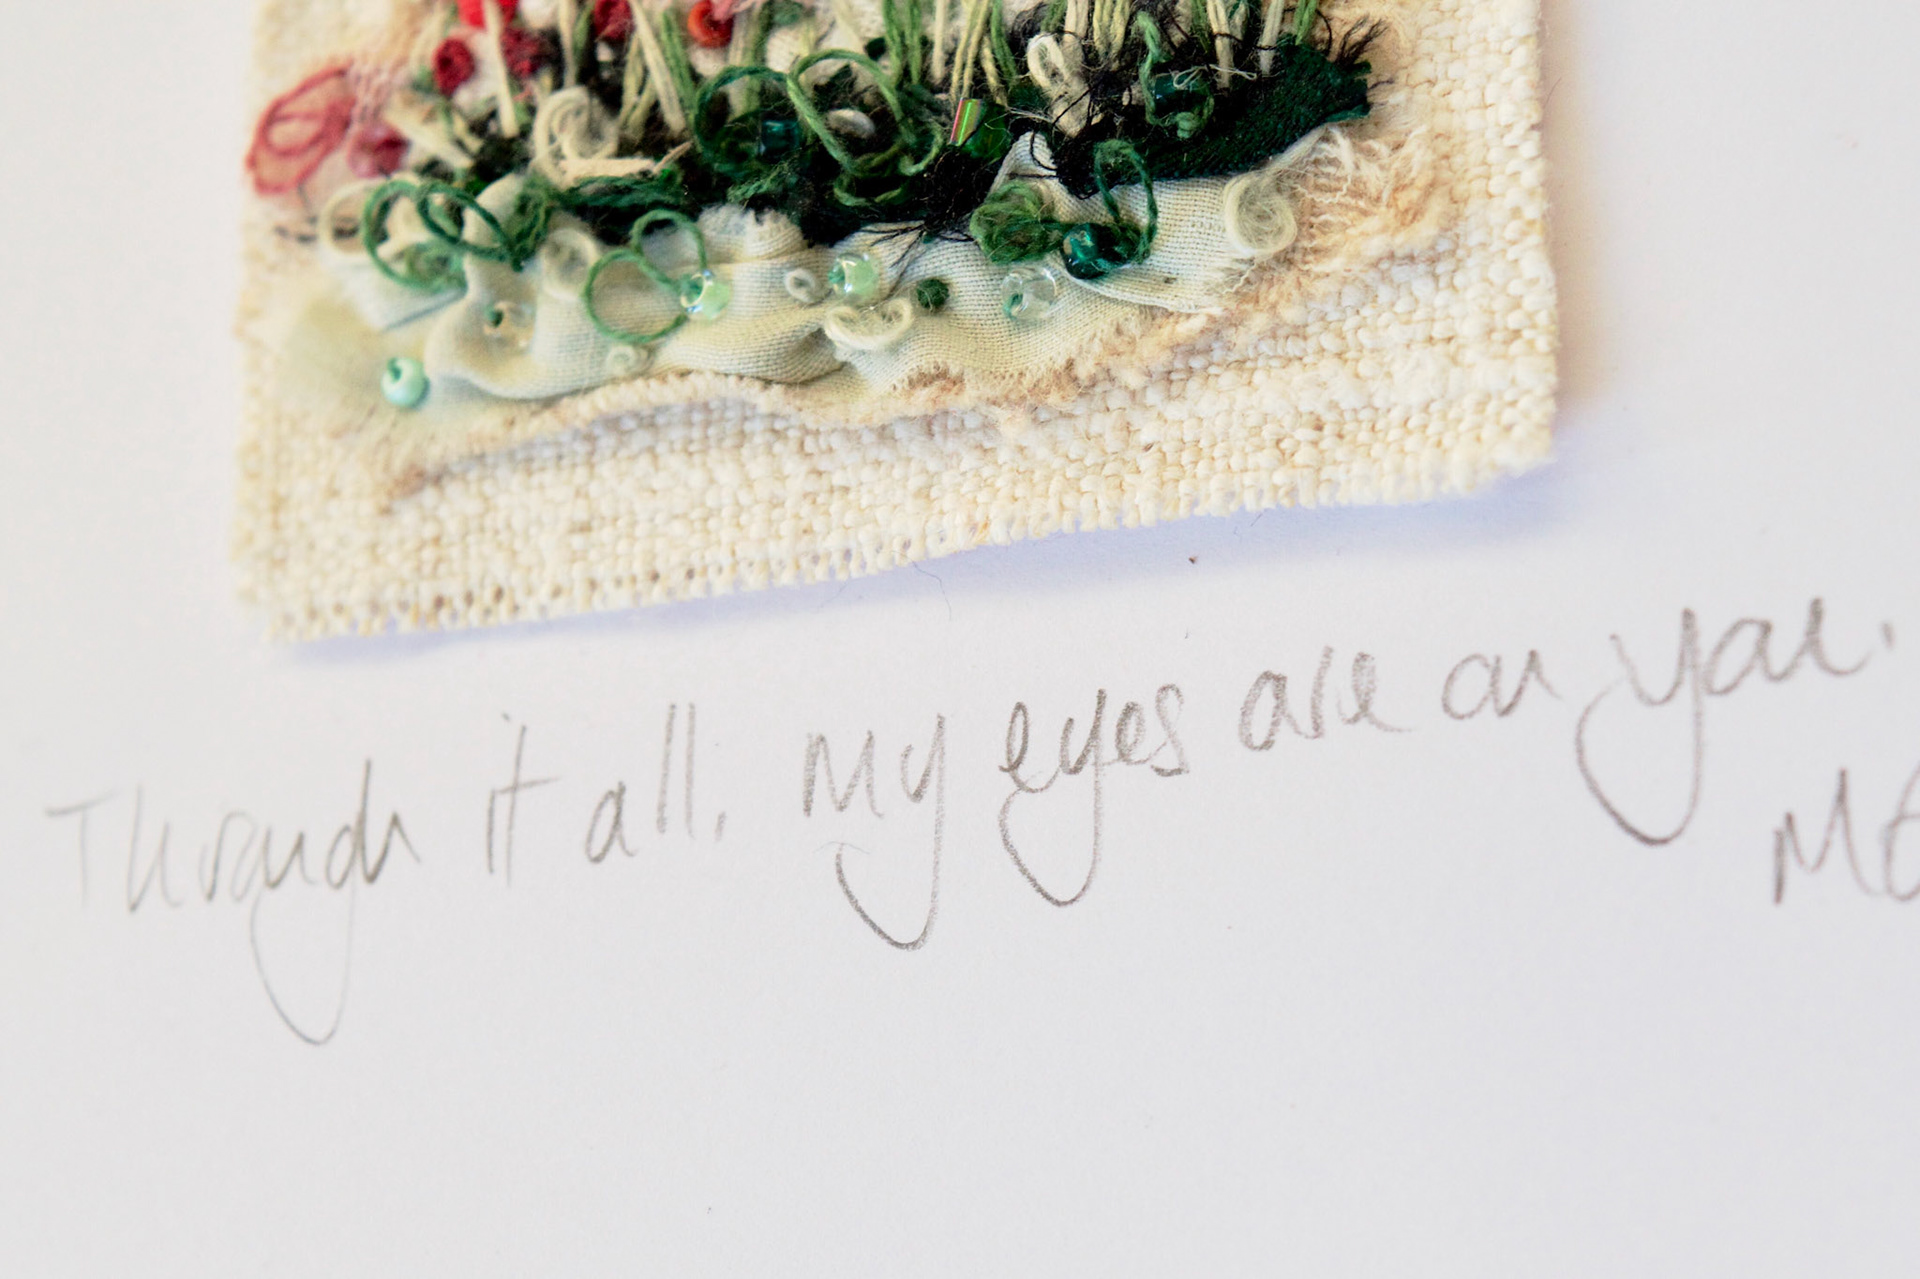 Through it all, My eyes are on you.